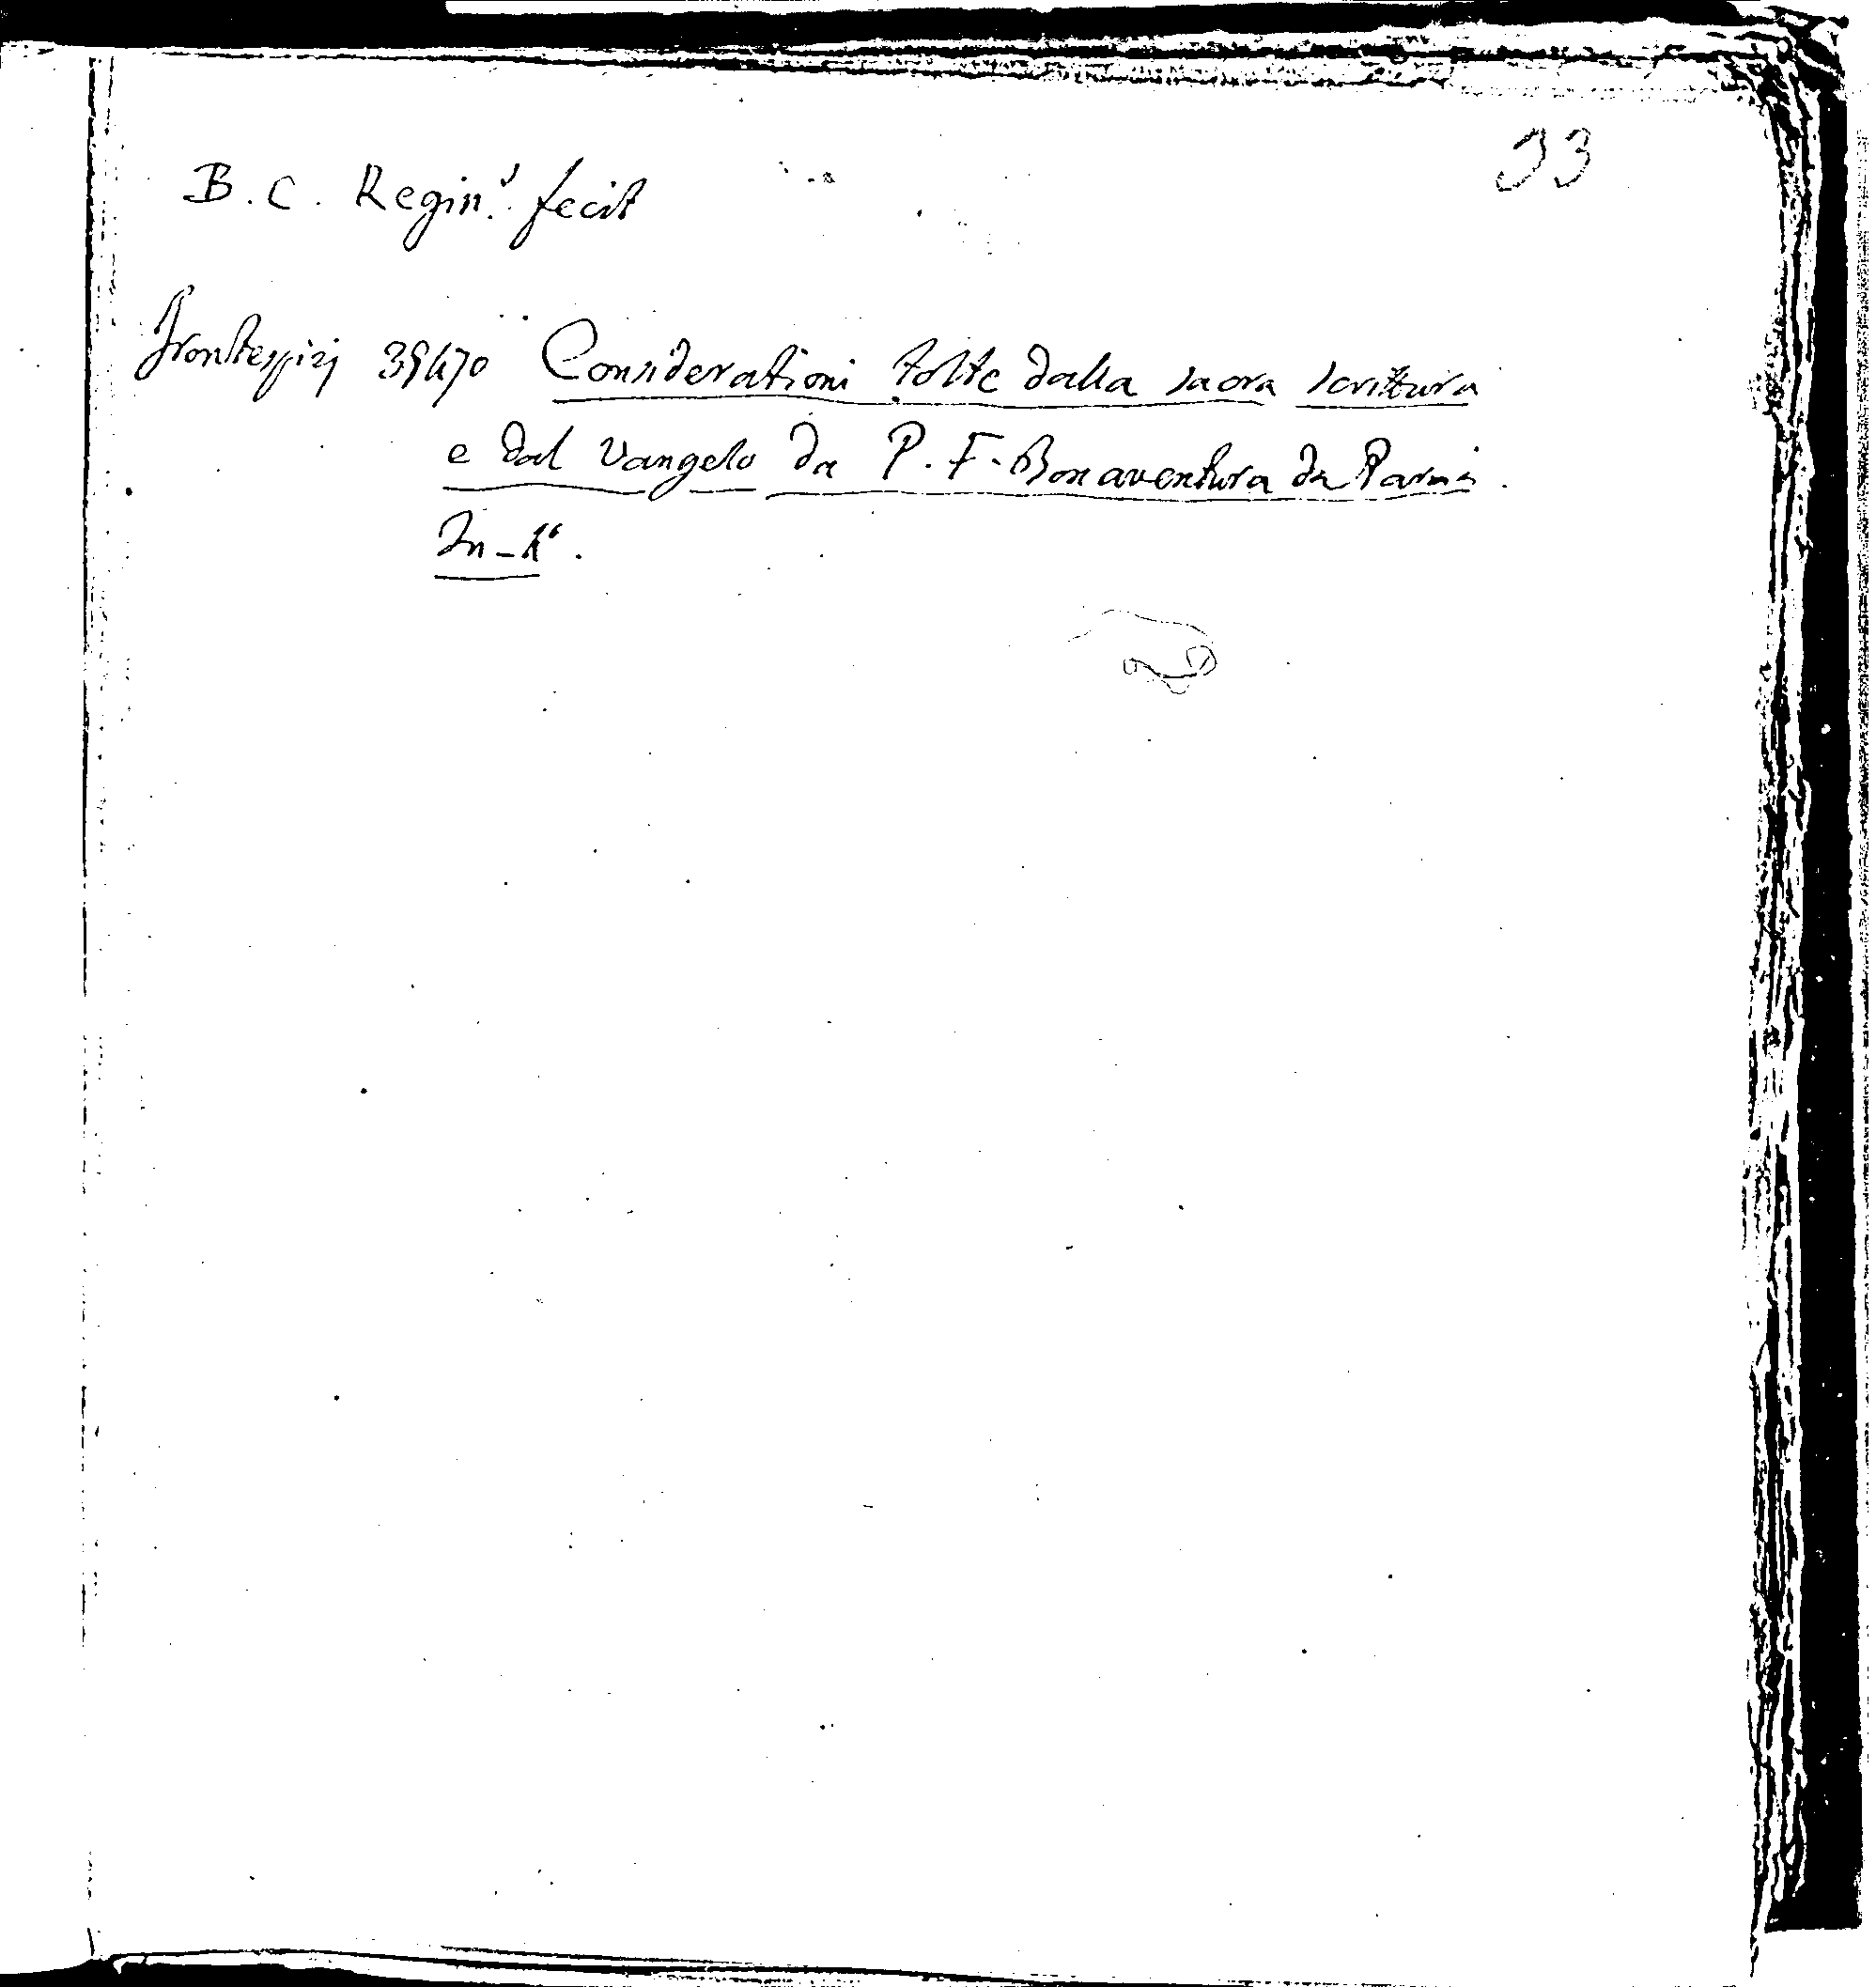 33
B. C. Regin.' fecit
Frontespizj 39470 Considerationi tolte dalla sacra scrittura
e dal vangelo da P. F. Bonaventura da Parma.
In-4°.